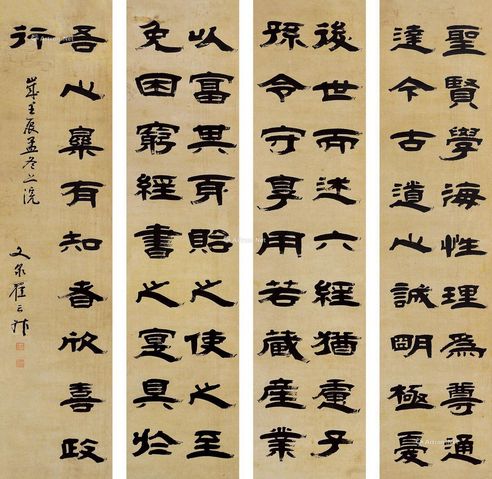 聖賢學海性理為尊通
達今古道心誠明極憂
後世而述六經猶慮子
孫令守享用若藏產業
以富其身貽之使之至
免困窮經書之寔具於
吾心寡有知者欣喜政
行
歲壬辰孟冬上浣
文泉翟云升